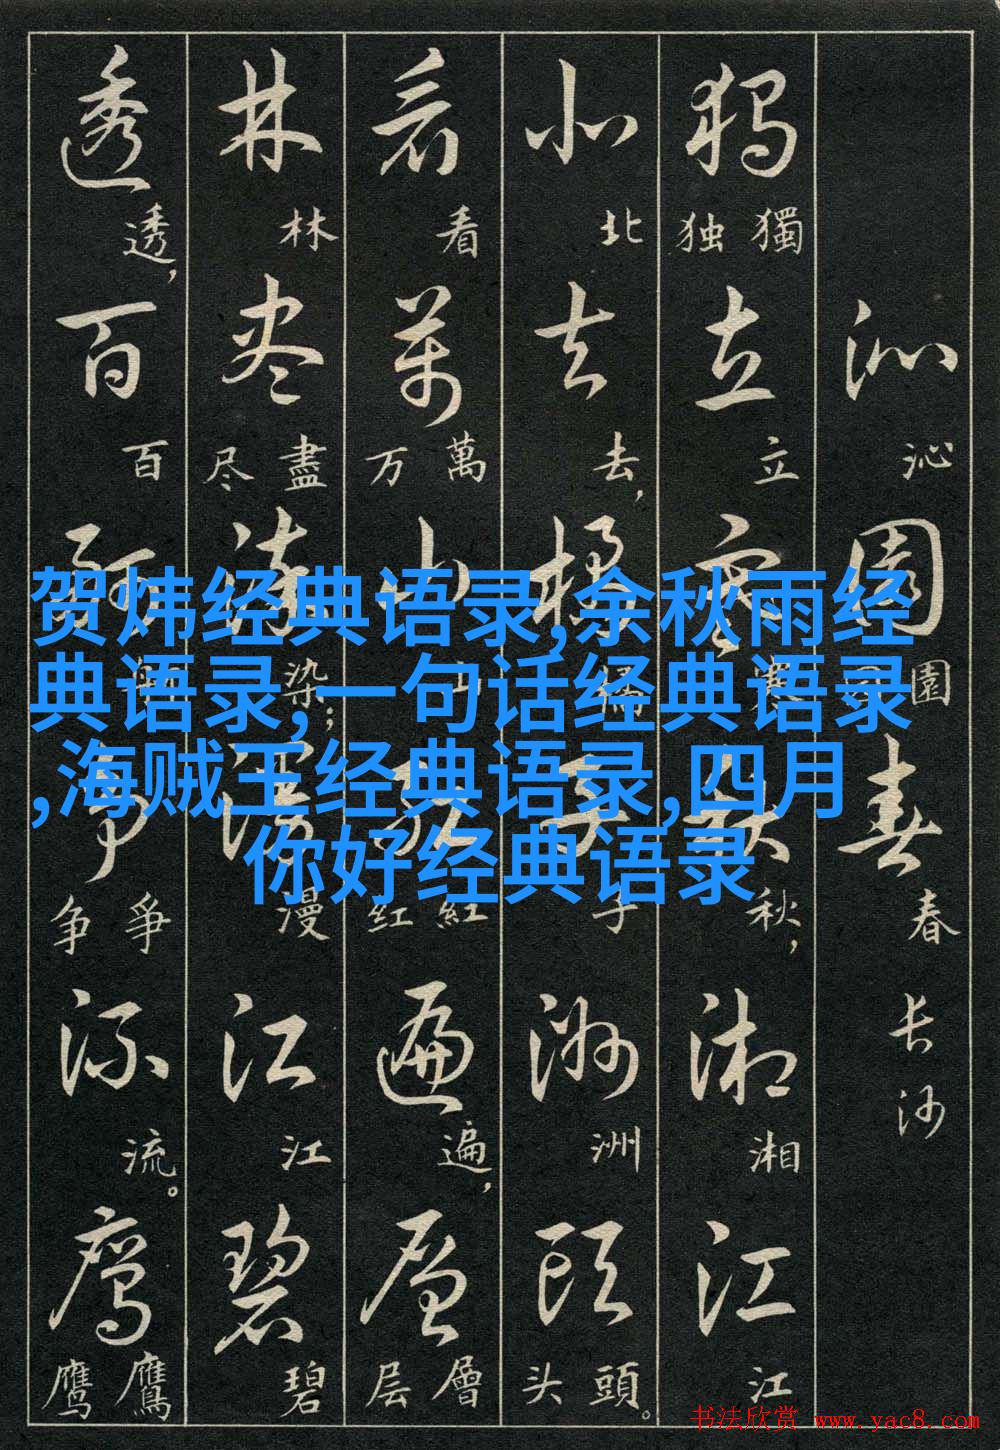 贺炜经典语录,余秋雨经
典语录,一句话经典语录
,海贼王经典语录,四月
你好经典语录
沁 沁 园 園 春 春 长沙
独 独 獨 立 立 寒 寒 秋 秋， 湘 湘 江 江
北 北 去 去， 橘 橘 子 子 洲 洲 头 头 頭。
看 看 萬 万 萬 山 山 红 红 紅 遍 遍， 层 层 層
林 林 尽 尽 盡 染 染； 漫 漫 江 江 碧 碧
透 透， 百 百 舸 争 争 爭 流 流。 鹰 鹰 鷹
书法欣赏 www.yac8.com